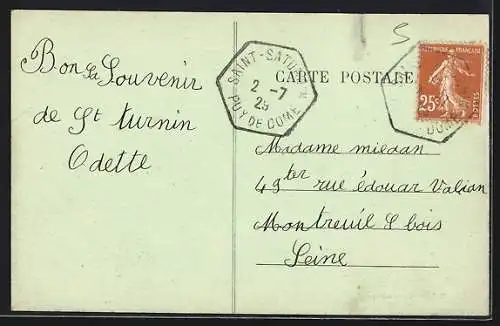 Bon Souvenir
de St turnin
Odette
SAINT-SATUR
2 -7
25
PUY DE DOME
CARTE POSTALE
S
25c
DOME
Madame miedan
49ter rue édouar Valian
Montreuil S bois
Seine